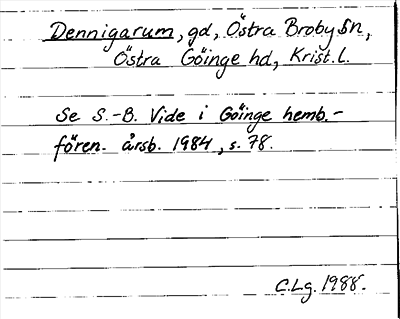 Dennigarum, gd, Östra Broby sn,
Östra Göinge hd, Krist. l.
Se S.-B. Vide i Göinge hemb.-
fören. årsb. 1984, s. 78.
C.Lg. 1988.